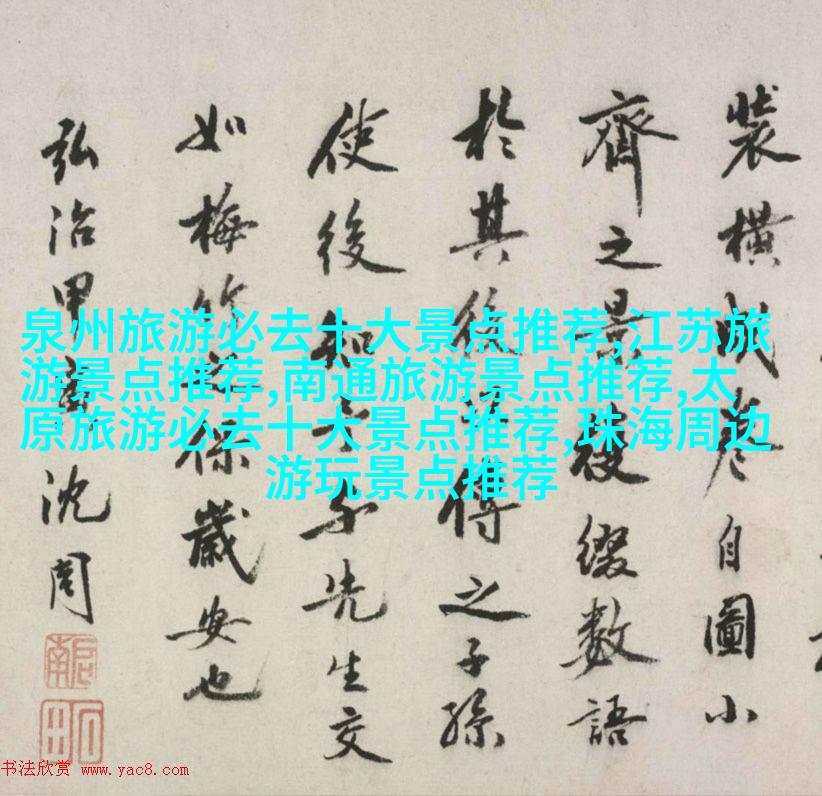 裝橫成卷自圖小
齊之景後綴數語
於其後得之子孫
使後知先生交
如梅竹保歲安也
弘治甲寅沈周
啟南
石田
泉州旅游必去十大景点推荐,江苏旅
游景点推荐,南通旅游景点推荐,太
原旅游必去十大景点推荐,珠海周边
游玩景点推荐
书法欣赏 www.yac8.com